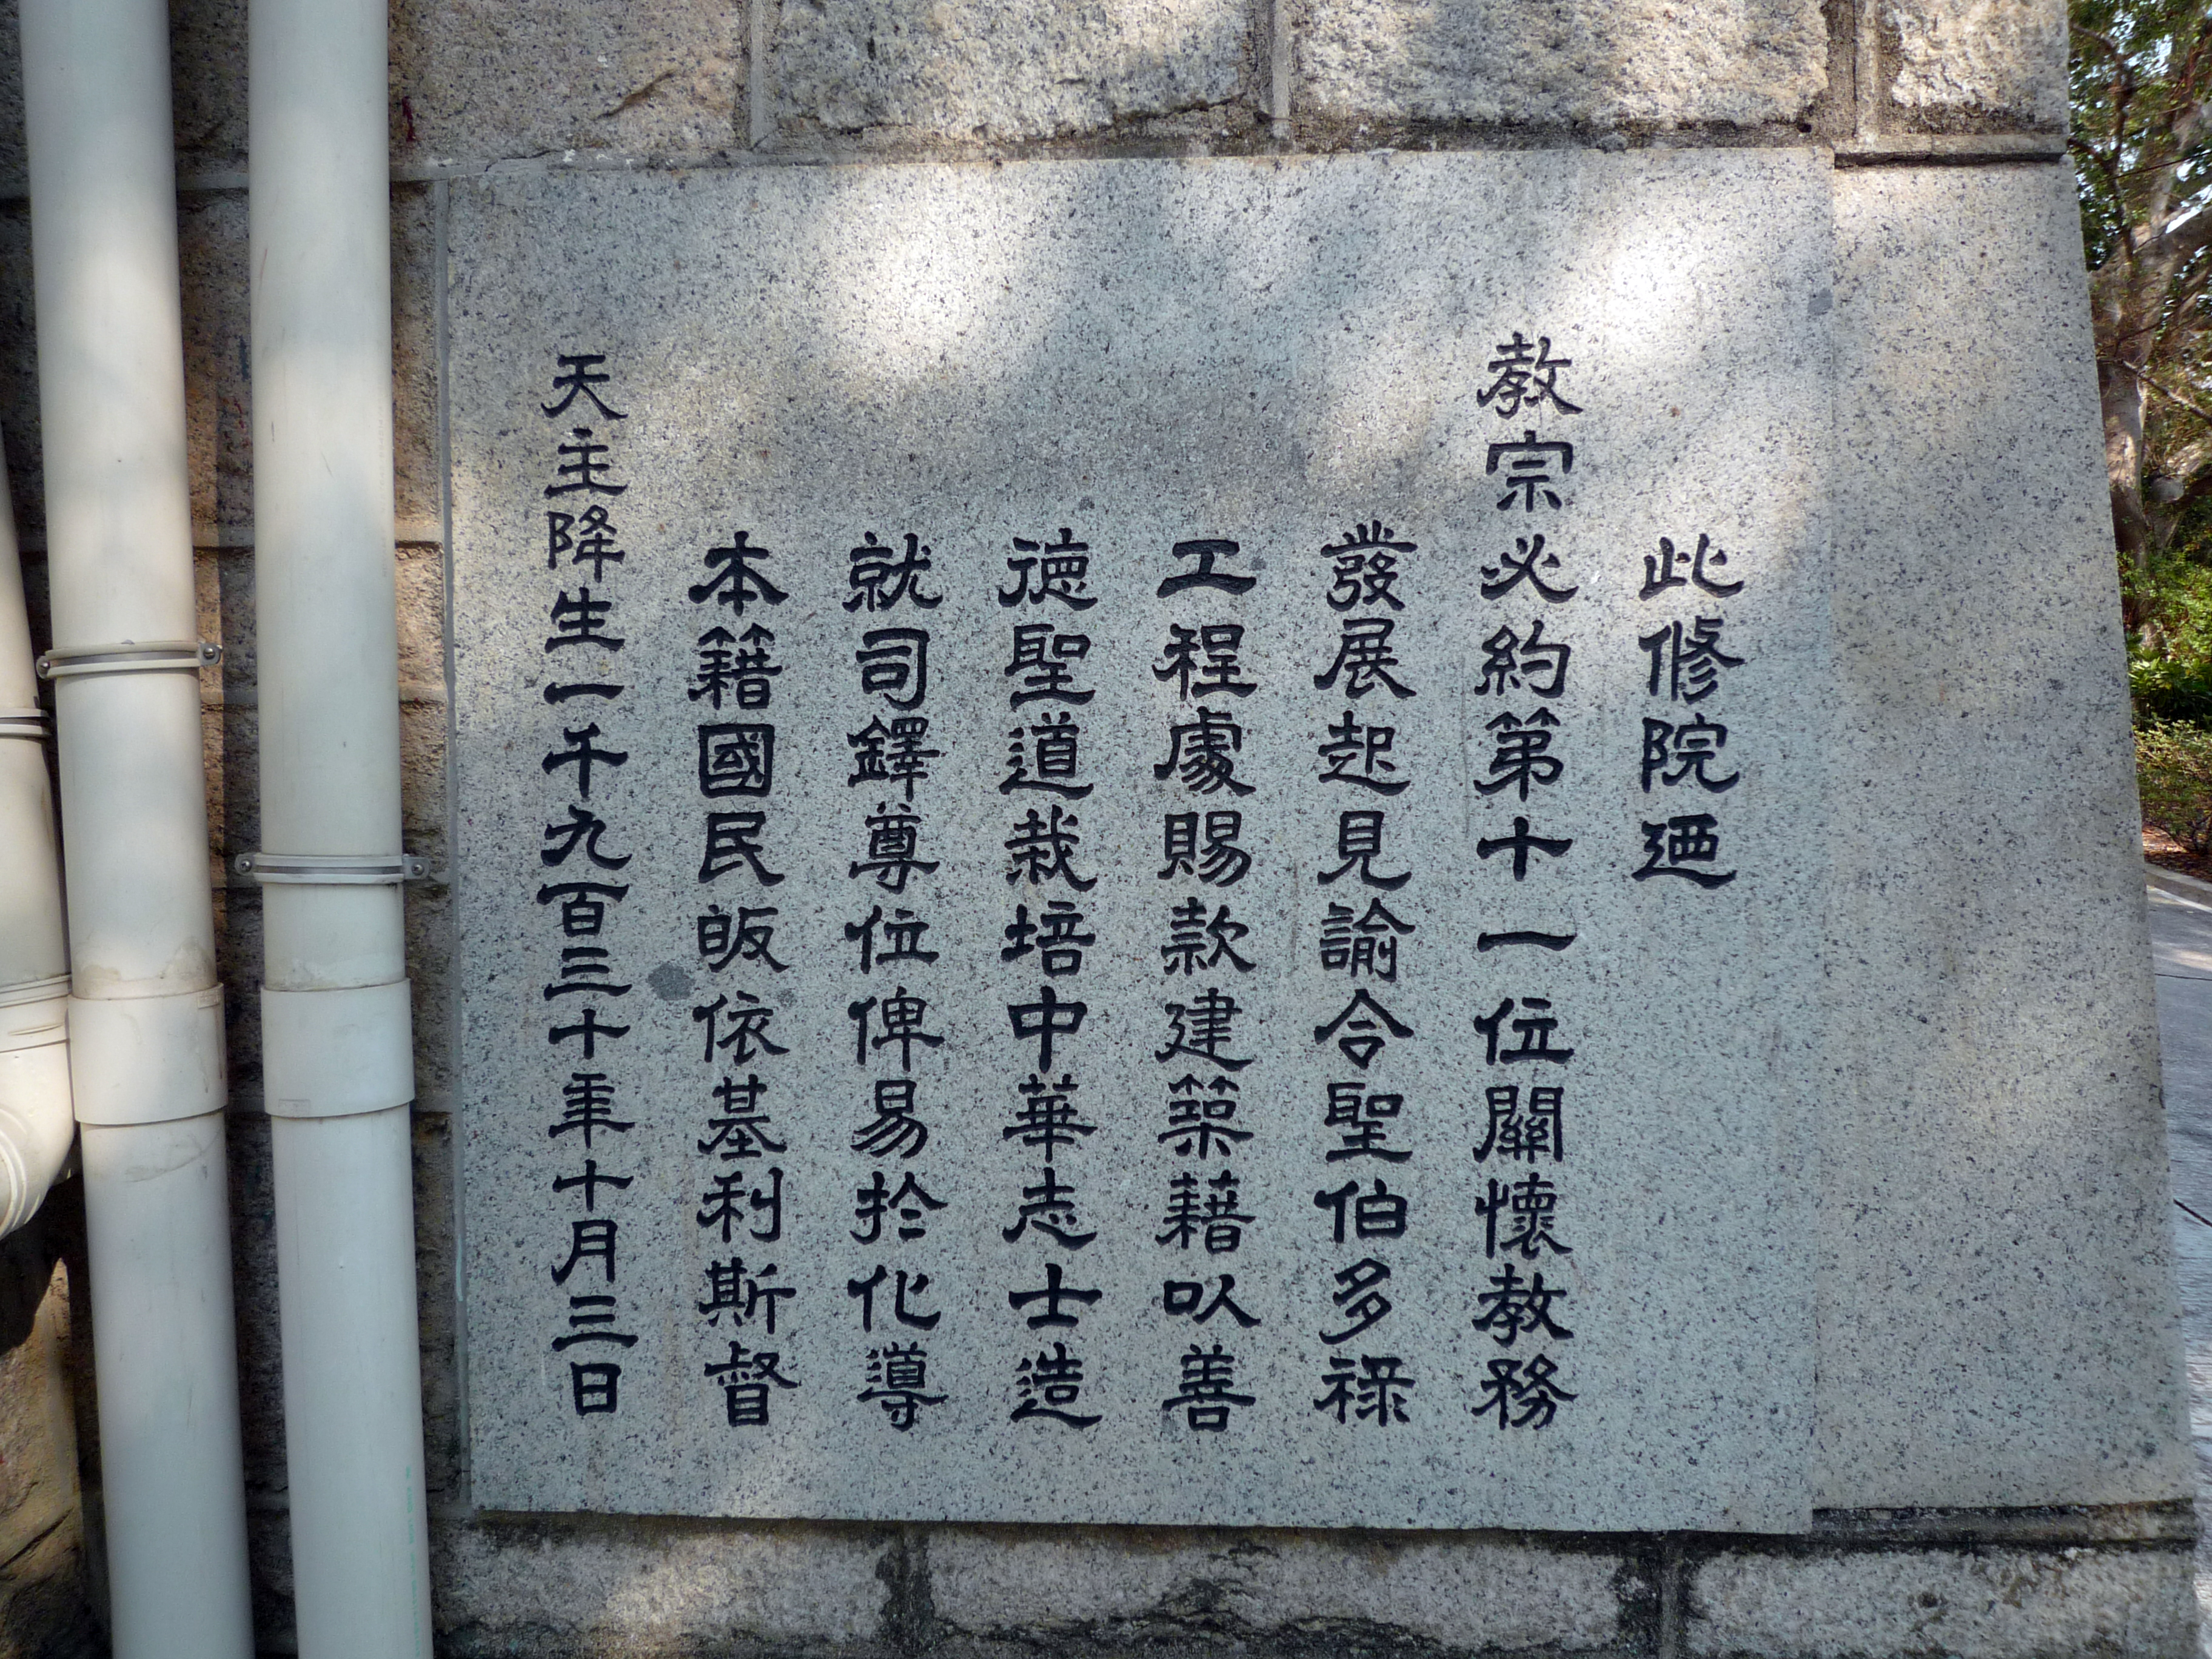 此修院廼
教宗必約第十一位關懷教務
發展起見諭令聖伯多祿
工程處賜款建築藉以善
徳聖道栽培中華志士造
就司鐸尊位俾易於化導
本籍國民皈依基利斯督
天主降生一千九百三十年十月三日